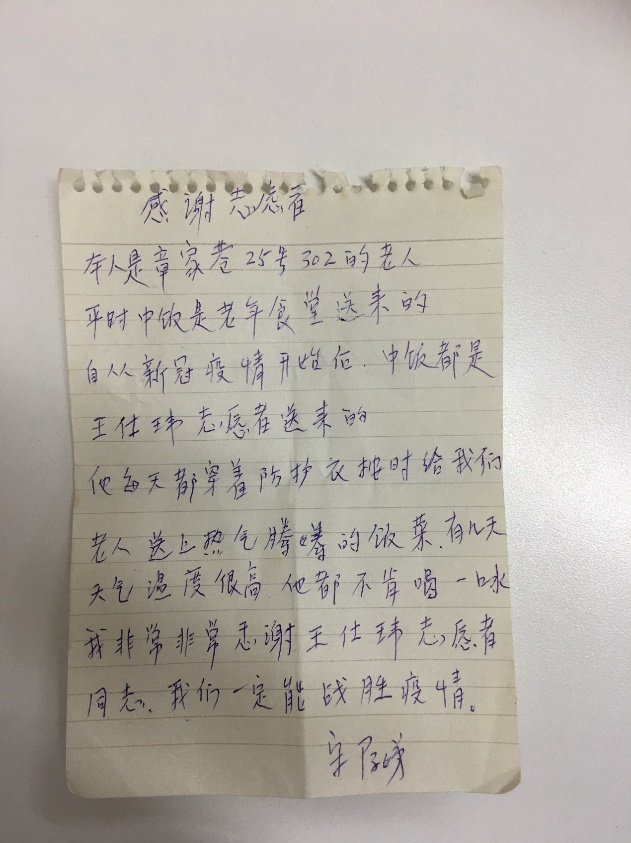 感谢志愿者
本人是章家巷25号302的老人
平时中饭是老年食堂送来的
自从新冠疫情开始后.中饭都是
王仕玮志愿者送来的
他每天都穿着防护衣按时给我们
老人送上热气腾腾的饭菜.有几天
天气温度很高 他都不肯喝一口水
我非常非常感谢王仕玮志愿者
同志.我们一定能战胜疫情。